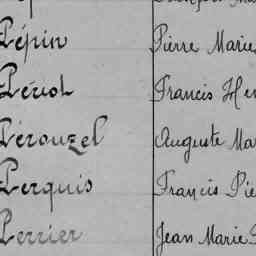 Pépin Pierre Marie
Pérot Francis Hen
Pérouzel Auguste Ma
Perquis Francis Pie
Perrier Jean Marie